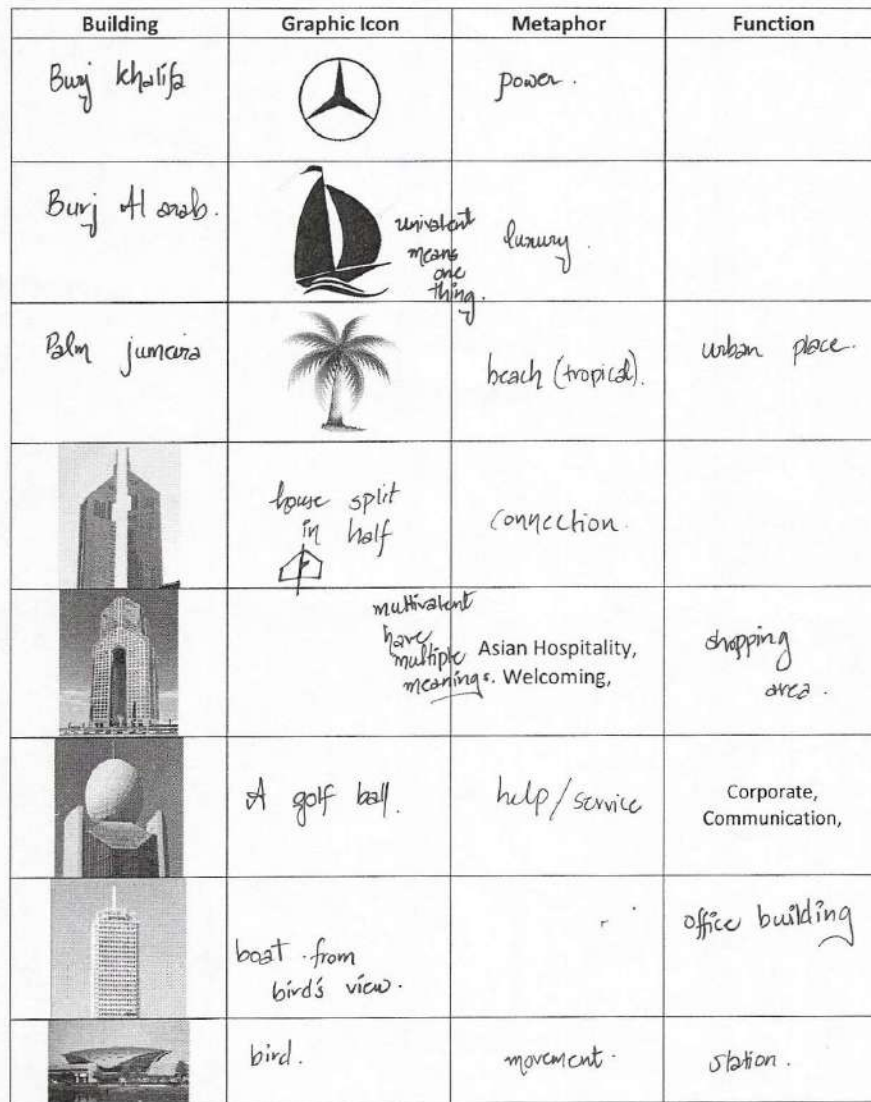 Building Graphic Icon Metaphor Function
Burj Khalifa
power.
Burj Al arab.
univalent
means
one
thing.
luxury.
Palm jumeira
beach (tropical).
urban place.
house split
in half
connection.
multivalent
have
multiple
meanings.
Asian Hospitality,
Welcoming,
shopping
area.
A golf ball.
help/service
Corporate,
Communication,
boat from
bird's view.
office building
bird.
movement.
station.